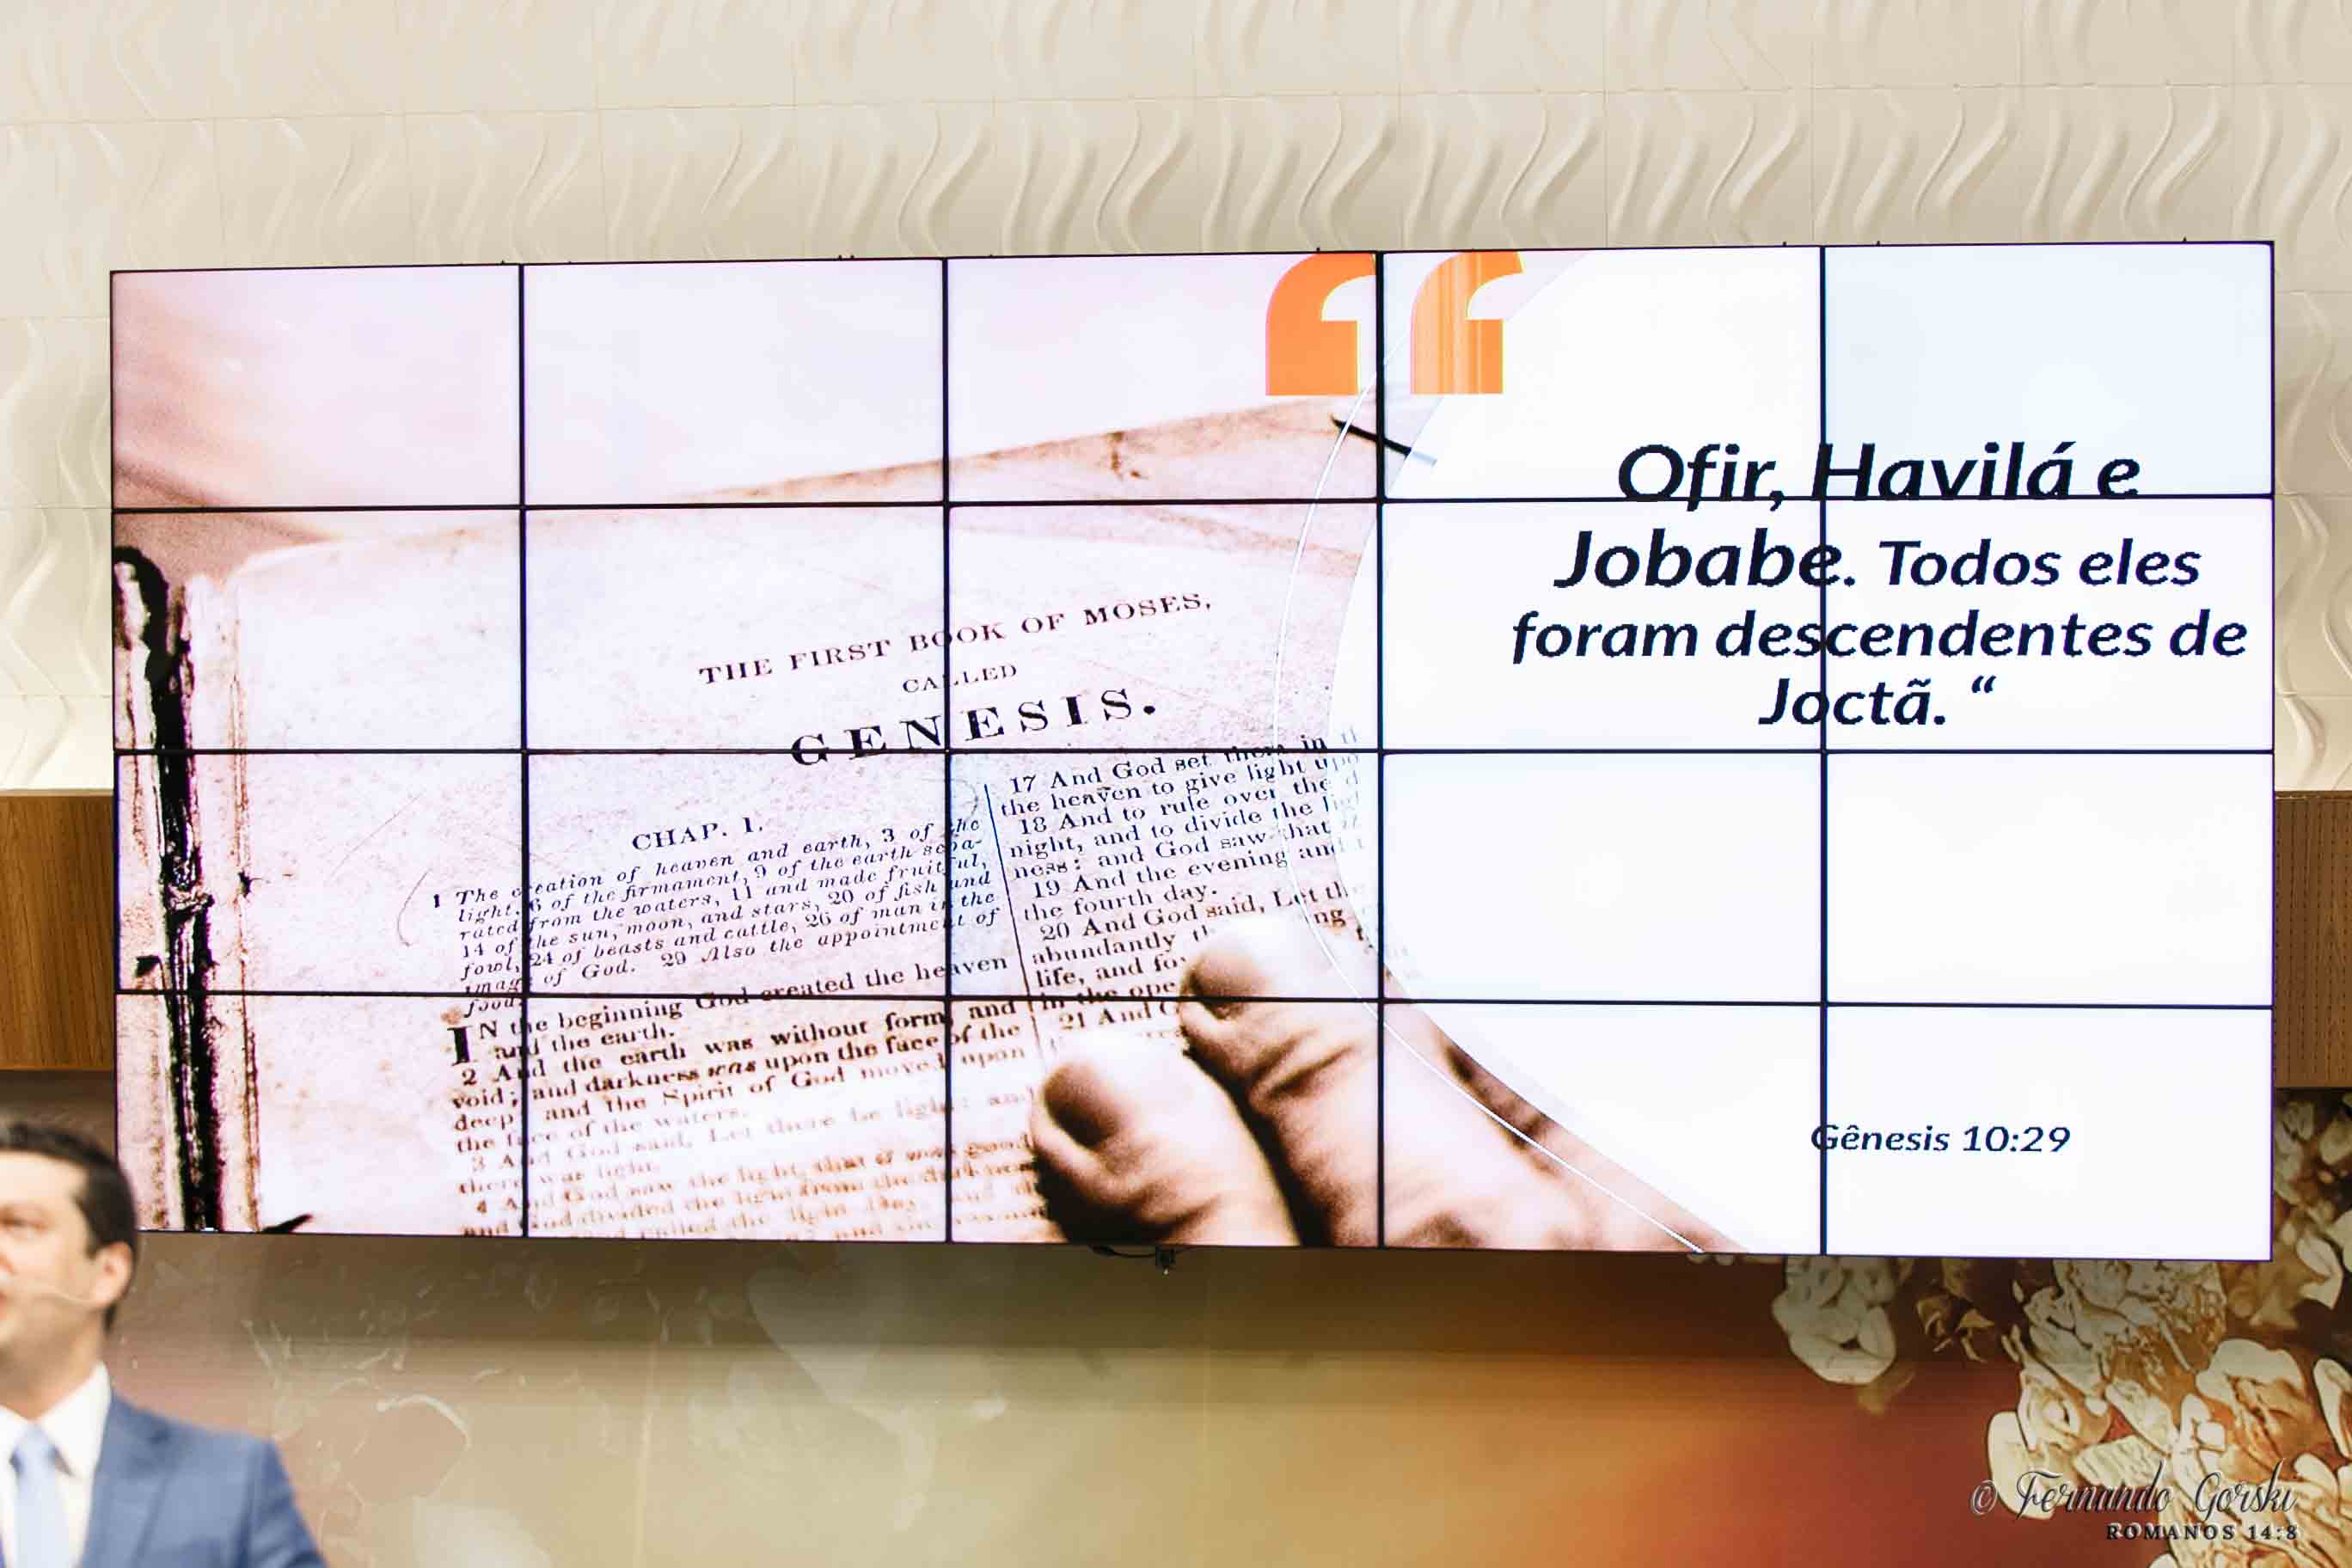 “
Ofir, Havilá e
Jobabe. Todos eles
foram descendentes de
Joctã. “
Gênesis 10:29
THE FIRST BOOK OF MOSES,
CALLED
GENESIS.
CHAP. 1.
1 The creation of heaven and earth, 3 of the
light, 6 of the firmament, 9 of the earth sepa-
rated from the waters, 11 and made fruitful,
14 of the sun, moon, and stars, 20 of fish and
fowl, 24 of beasts and cattle, 26 of man in the
image of God. 29 Also the appointment of
food.
IN the beginning God created the heaven
and the earth.
2 And the earth was without form, and
void; and darkness was upon the face of the
deep: and the Spirit of God moved upon
the face of the waters.
3 And God said, Let there be light: and
there was light.
4 And God saw the light, that it was good
and God divided the light from the darkness
17 And God set them in
the heaven to give light upo
18 And to rule over the d
night, and to divide the lig
ness: and God saw that
19 And the evening and
the fourth day.
20 And God said, Let the
abundantly
life, and
in the ope
21 And G
© Fernando Gorski
ROMANOS 14:8